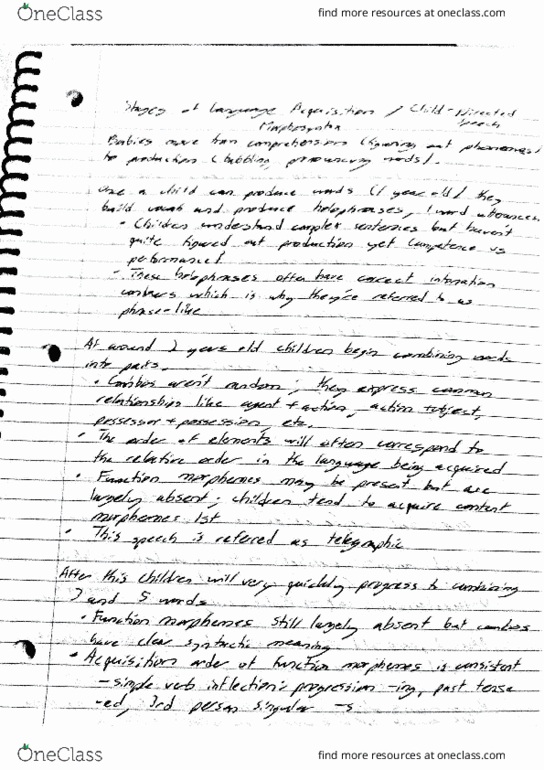 OneClass
find more resources at oneclass.com
Stages of Language Acquisition / Child-Directed
Morphosyntax Speech
Babies move from comprehension (figuring out phonemes)
to production (babbling, pronouncing words).
Once a child can produce words (1 year old) they
build vocab and produce holophrases, 1 word utterances.
• Children understand complex sentences but haven't
quite figured out production yet competence vs
performance!
• These holophrases often have correct intonation
contours which is why they're referred to as
phrase-like
At around 2 years old children begin combining words
into pairs.
• Combos aren't random; they express common
relationships like agent + action, action + object,
possessor + possession, etc.
• The order of elements will often correspond to
the relative order in the language being acquired
• Function morphemes may be present but are
largely absent; children tend to acquire content
morphemes 1st
• This speech is refered as telegraphic
After this children will very quickly progress to combining
3 and 5 words
• Function morphemes still largely absent but combos
have clear syntactic meaning
• Acquisition order of function morphemes is consistent
- simple verb inflection: progression -ing, past tense
-ed, 3rd person singular -s
OneClass
find more resources at oneclass.com